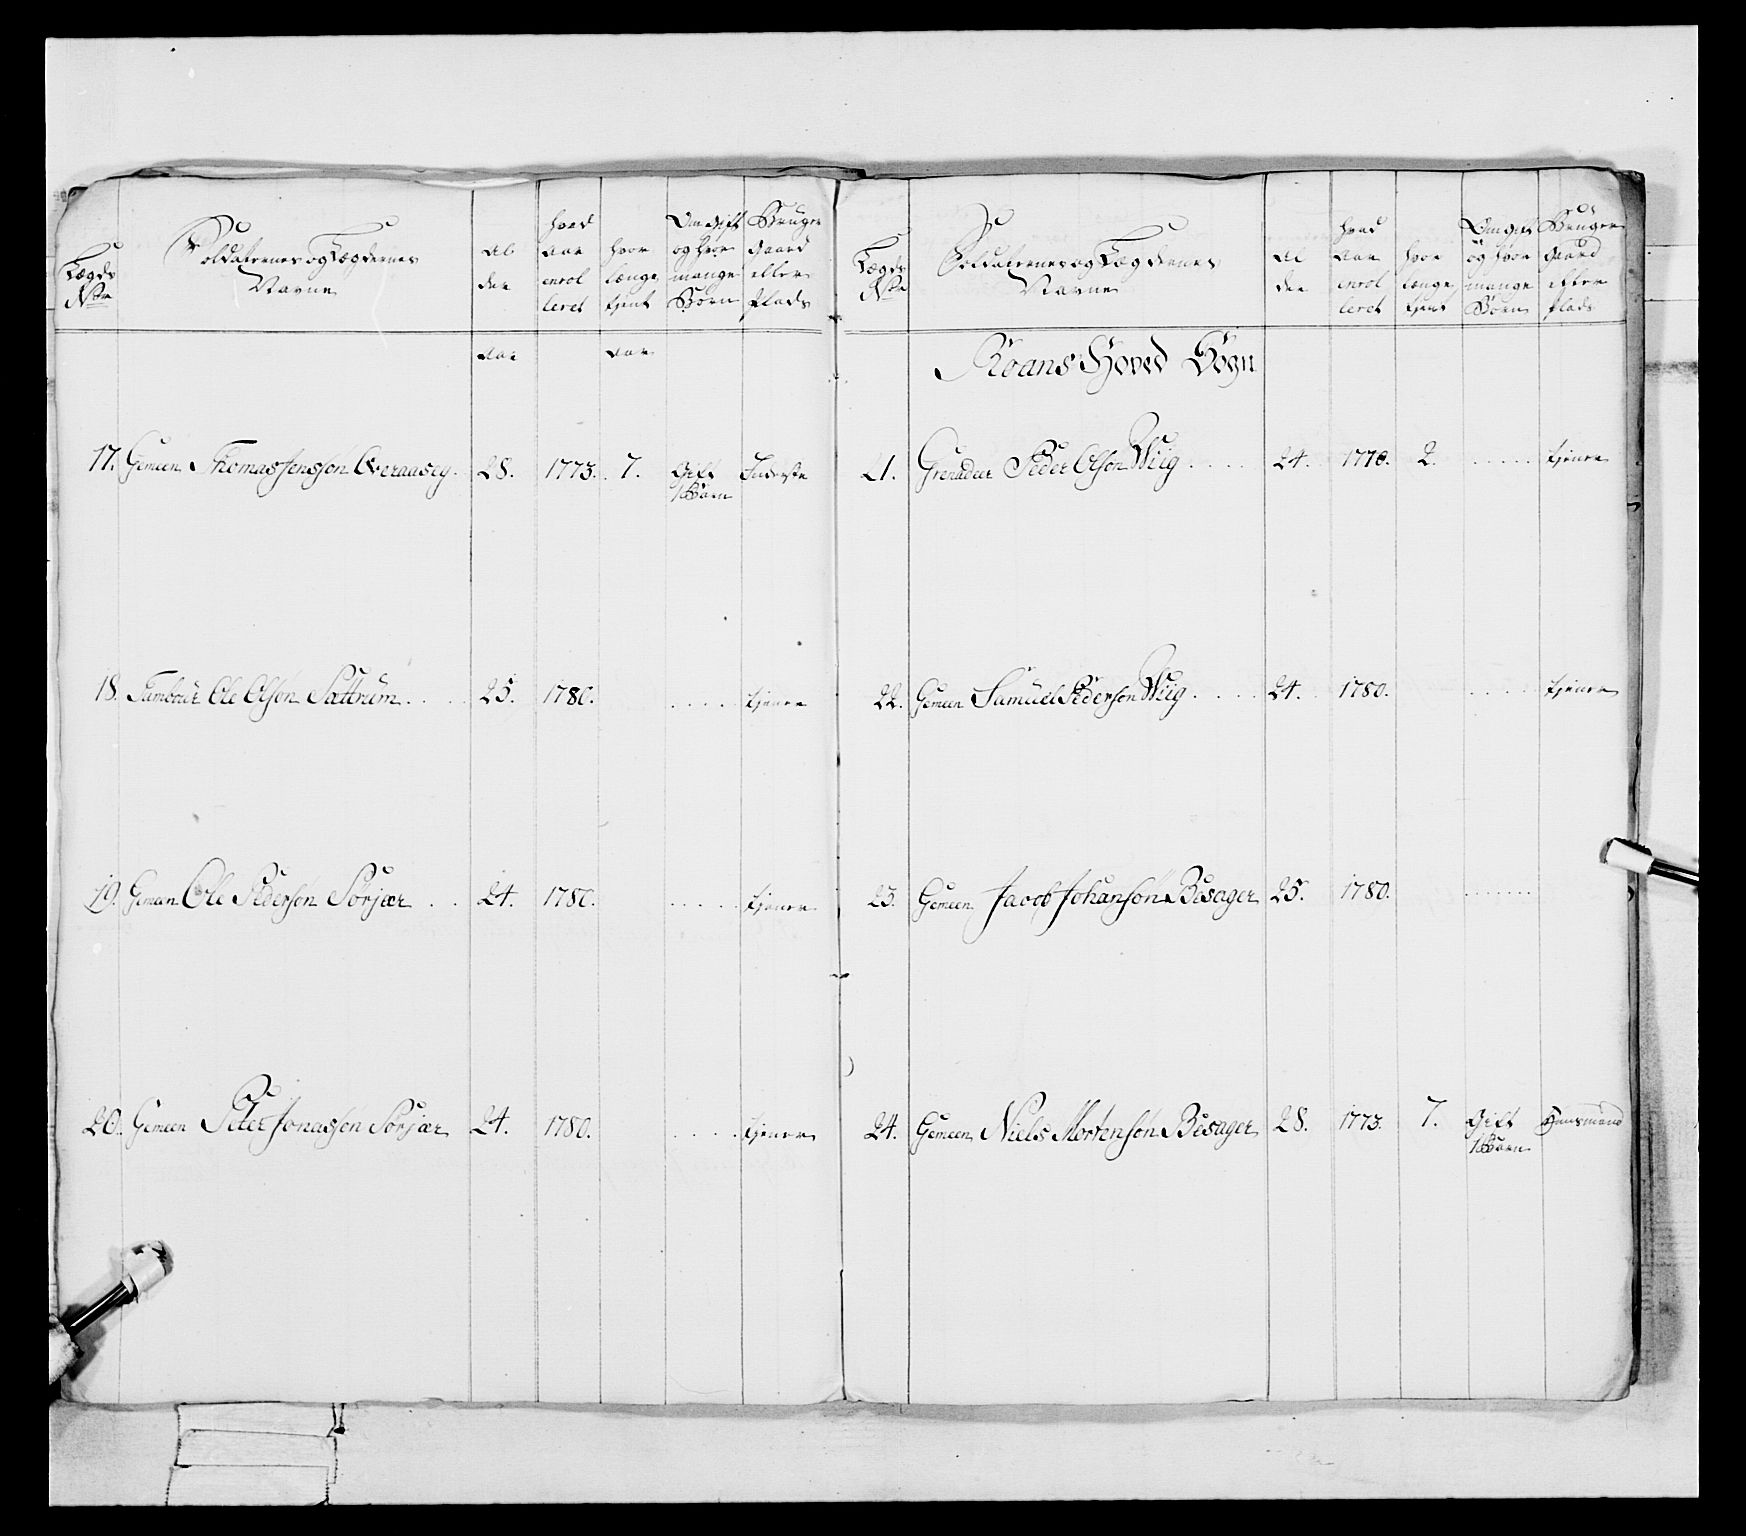 Lægds Nr
Soldaternes og Lægdernes Navne
Al der
hvad Aar enrol leret
hvor længe tient
Om gift og hvor mange Børn
Bruger Gaard eller Plads
Aar
Aar
17. Gemeen Thomas Jensøn Overaaseg. 28. 1773. 7. Gift 1 Barn Inderste
18. Tambour Ole Olsøn Sættrum.... 25. 1780. ..... tjener
19. Gemeen Ole Pedersøn Sørjær .. 24. 1780. ..... tjener
20. Gemeen Peter Jonassøn Sørjær 24. 1780. ..... tjener
Lægds Nr
Soldaternes og Lægdernes Navne
Al der
hvad Aar enrol leret
hvor længe tient
Om gift og hvor mange Børn
Bruger Gaard eller Plads
Roans Hoved Sogn
21. Grenadeer Peder Olsøn Wiig .... 24. 1778. 2. ..... tjener
22. Gemeen Samuel Pedersøn Wiig .... 24. 1780. ..... tjener
23. Gemeen Jacob Johansøn Besager 25. 1780. .......
24. Gemeen Niels Mortensøn Besager 28. 1773. 7. Gift 1 Barn Huusmand